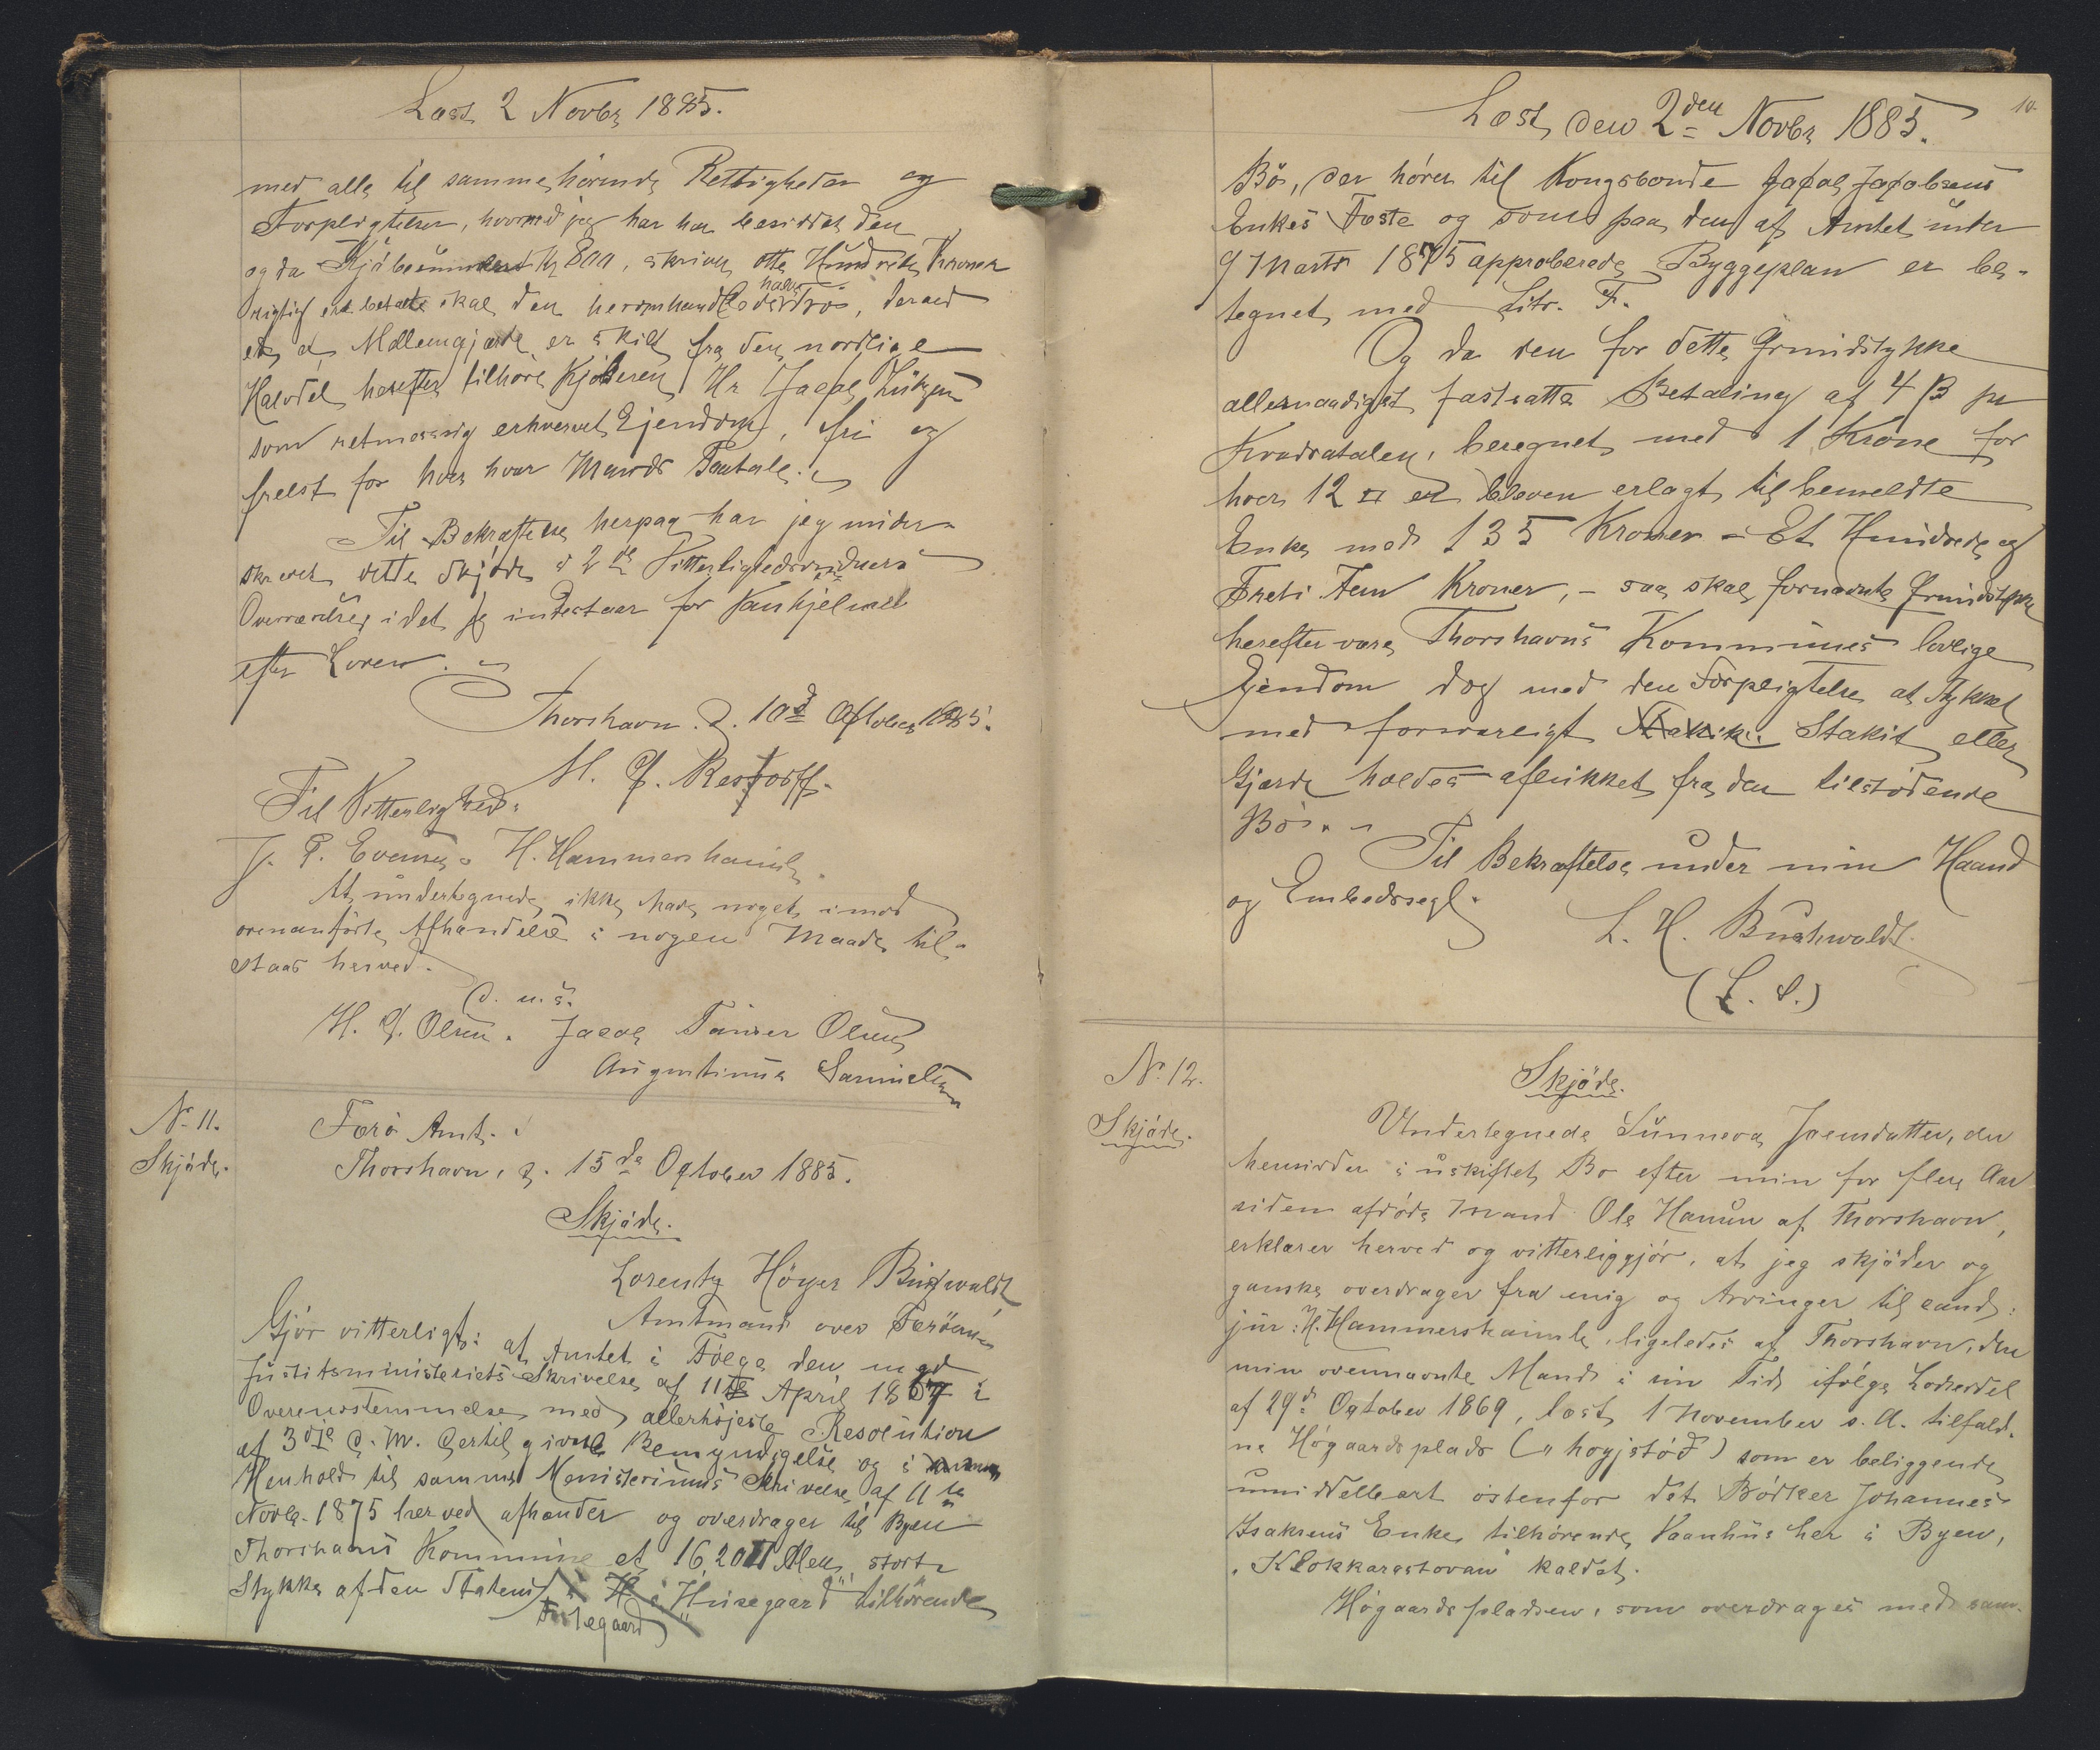 Læst 2 Novbr 1885.
med alle til samme hørende Rettigheder og
Forpligtelser, hvormed jeg har har besiddet den
og da Kjøbesummen Kr 800, skriver otte Hundrede Kroner
rigtig er betalt skal den heromhandlede halve Trø, der ved
et Mellemgjærde er skilt fra den nordlige
Halvdel herefter tilhøre Kjøberen Hr Jacob Lützen
som retmæssig erhvervet Ejendom, fri og
frelst for hver Mands Paatale.
Til Bekræftelse herpaa har jeg under-
skrevet dette Skjøde i 2de Vitterlighedsvidners
Overværelse, idet jeg indestaar for Vanhjemmel
efter Loven.
Thorshavn d. 10d Oktober 1885.
M. C. Restorff.
Til Vitterlighed:
J. P. Evensen H. Hammershaimb.
At undertegnede ikke have noget imod
ovenanførte Afhændelse i nogen Maade til-
staas herved.
D. u. s.
H. J. Olsen. Jacob Olsen
Augustinus Samuelsen
No 11.
Skjøde.
Færø Amt.
Thorshavn, d. 15de October 1885.
Skjøde.
Lorentz Höyer Buchwaldt
Amtmand over Færöerne
Gjør vitterligt: at Amtet i Følge den med
Justitsministeriets Skrivelse af 11te April 1867 i
Overensstemmelse med allerhöjeste Resolution
af 3die d. M. dertil givne Bemyndigelse og i
Henhold til samme Ministeriums Skrivelse af 11te
Novbr. 1875 herved afhænder og overdrager til Byen
Thorshavns Kommune et 1620 □ Alen stort
Stykke af den Statens i Husegaard tilhørende
10.
Læst den 2den Novbr 1885.
Bö, der hører til Kongsbonde Jacob Jacobsens
Enkes Fæste og som paa den af Amtet under
9 Marts 1875 approberede Byggeplan er be-
tegnet med Litr. F.
Og da den for dette Grundstykke
allernaadigst fastsatte Betaling af 4 ß pr
Kvadratalen, beregnet med 1 Krone for
hver 12 □ er bleven erlagt til bemeldte
Enke med 135 Kroner - Et Hundrede og
Treti Fem Kroner, - saa skal fornævnte Grundstykke
herefter være Thorshavns Kommunes lovlige
Ejendom dog med den Forpligtelse at Stykket
med forsvarligt Stakit eller
Gjærde holdes aflukket fra den tilstødende
Bö.
Til Bekræftelse under min Haand
og Embedssegl.
L. H. Buchwaldt.
(L. S.)
No 12.
Skjøde.
Skjøde.
Undertegnede Sunneva Joensdatter, der
hensidder i uskiftet Bo efter min for flere Aar
siden afdøde Mand Ole Hansen af Thorshavn,
erklærer herved og vitterliggjør, at jeg skjøder og
ganske overdrager fra mig og Arvinger til cand:
jur: H. Hammershaimb, ligeledes af Thorshavn, den
min ovennævnte Mand i sin Tid ifølge Lodseddel
af 29d October 1869, læst 1 November s. A. tilfald-
ne Høgaardsplads ("hoygjstöd") som er beliggende
umiddelbart østenfor det Bødker Johannes
Isaksens Enke tilhørende Vaanhus her i Byen,
"Klokkarastovan" kaldet.
Høgaardspladsen, som overdrages med sam-